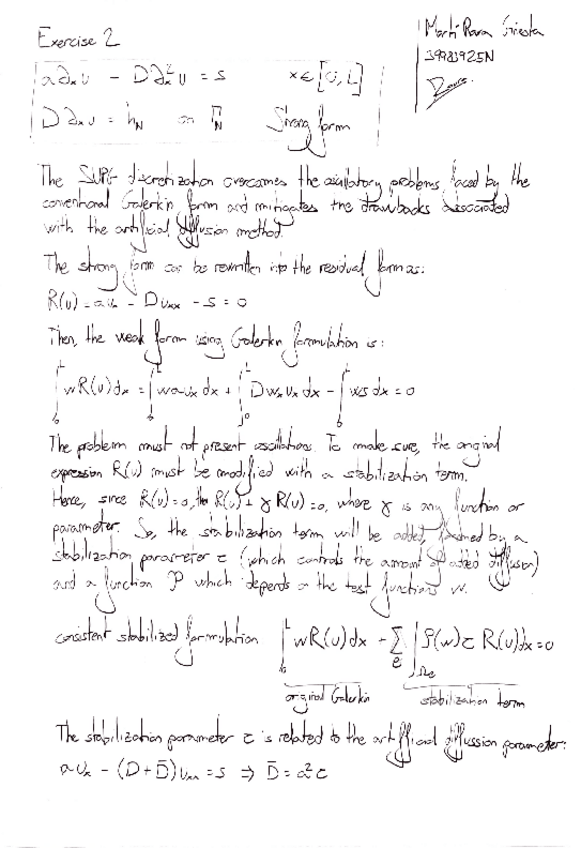 Exercise 2
39981925N
a∂ₓu − D∂ₓ²u = s x∈[0,L]
D∂ₓu = h_N on Γ_N Strong form
The SUPG discretization overcomes the oscillatory problems faced by the
conventional Galerkin form and mitigates the drawbacks associated
with the artificial diffusion method.
The strong form can be rewritten into the residual form as:
R(u) = auₓ − Duₓₓ − s = 0
Then, the weak form using Galerkin formulation is:
∫₀ᴸ wR(u)dx = ∫₀ᴸ wauₓ dx + ∫₀ᴸ Dwₓuₓ dx − ∫₀ᴸ ws dx = 0
The problem must not present oscillations. To make sure, the original
expression R(u) must be modified with a stabilization term.
Hence, since R(u)=0, the R(u) + γR(u)=0, where γ is any function or
parameter. So, the stabilization term will be added, formed by a
stabilization parameter τ (which controls the amount of added diffusion)
and a function P which depends on the test functions w.
consistent stabilized formulation ∫₀ᴸ wR(u)dx + Σₑ ∫_Ωe P(w)τ R(u)dx = 0
original Galerkin stabilization term
The stabilization parameter τ is related to the artifficial diffussion parameter:
auₓ − (D+D̄)uₓₓ = s ⇒ D̄ = a²τ